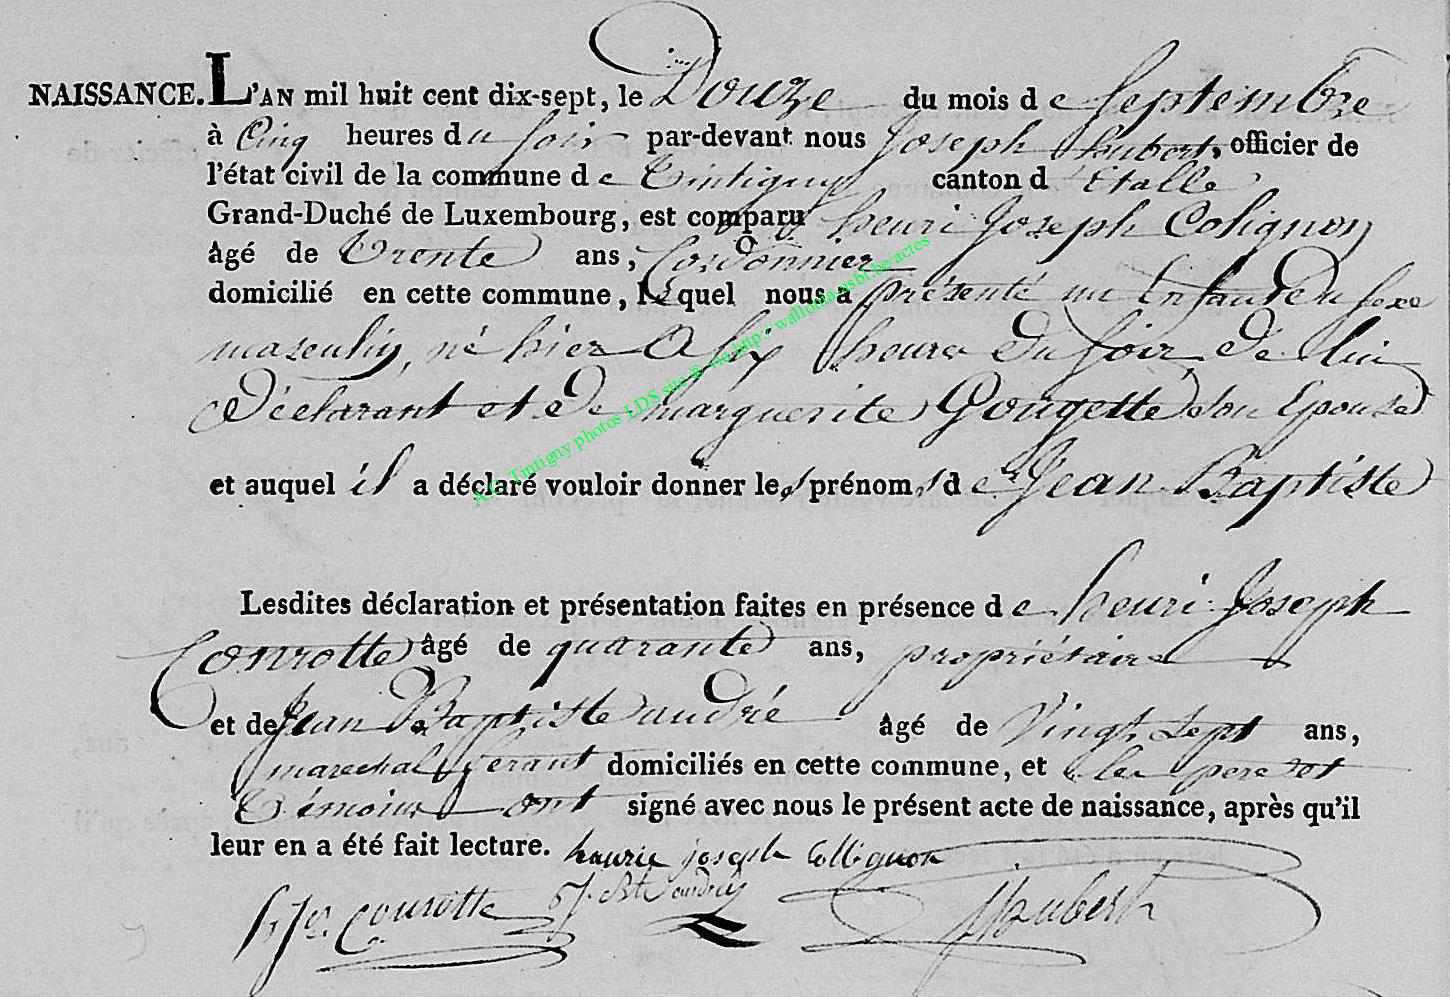 NAISSANCE. L'AN mil huit cent dix-sept, le Douze du mois de Septembre
à Cinq heures du Soir par-devant nous Joseph hubert, officier de
l'état civil de la commune de Tintigny canton d'Etalle
Grand-Duché de Luxembourg, est comparu henri Joseph Colignon
âgé de Trente ans, Cordonnier
domicilié en cette commune, lequel nous a présenté un Enfant du sexe
masculin, né hier a six heures du soir de lui
Déclarant et de marguerite Gougette son Epouse
et auquel il a déclaré vouloir donner les prénoms de Jean Baptiste
Lesdites déclaration et présentation faites en présence de henri Joseph
Conrotte âgé de quarante ans, propriétaire
et de Jean Baptiste andré âgé de Vingt sept ans,
marechal ferant domiciliés en cette commune, et les pere et
Témoins ont signé avec nous le présent acte de naissance, après qu'il
leur en a été fait lecture. henrie joseph Collignon
h: Jo. Conrotte J. Bte andré JHubert
A.C. Tintigny photos LDS sur © via http://wallonia-asbl.be/actes